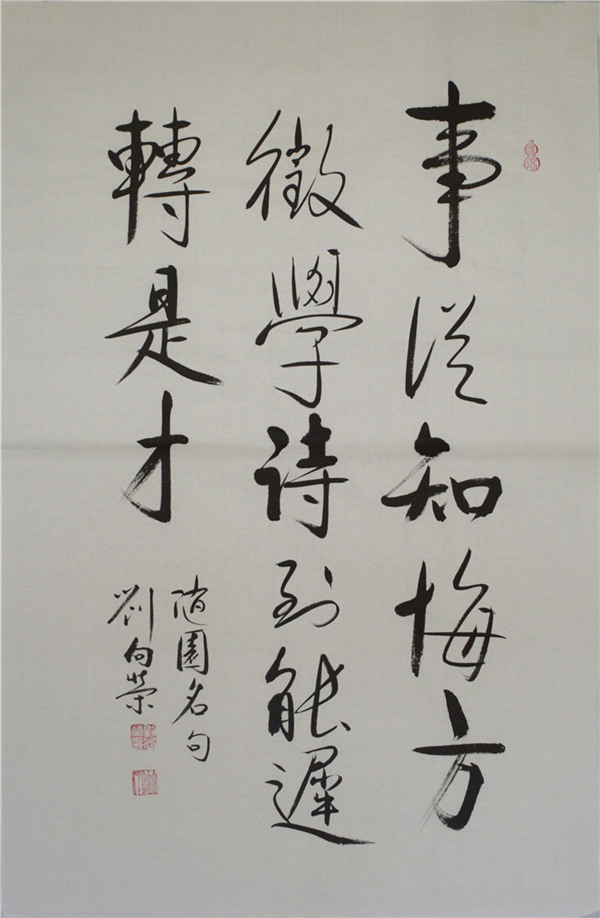 事從知悔方
徵學詩到能遲
轉是才
隨園名句
劉向榮